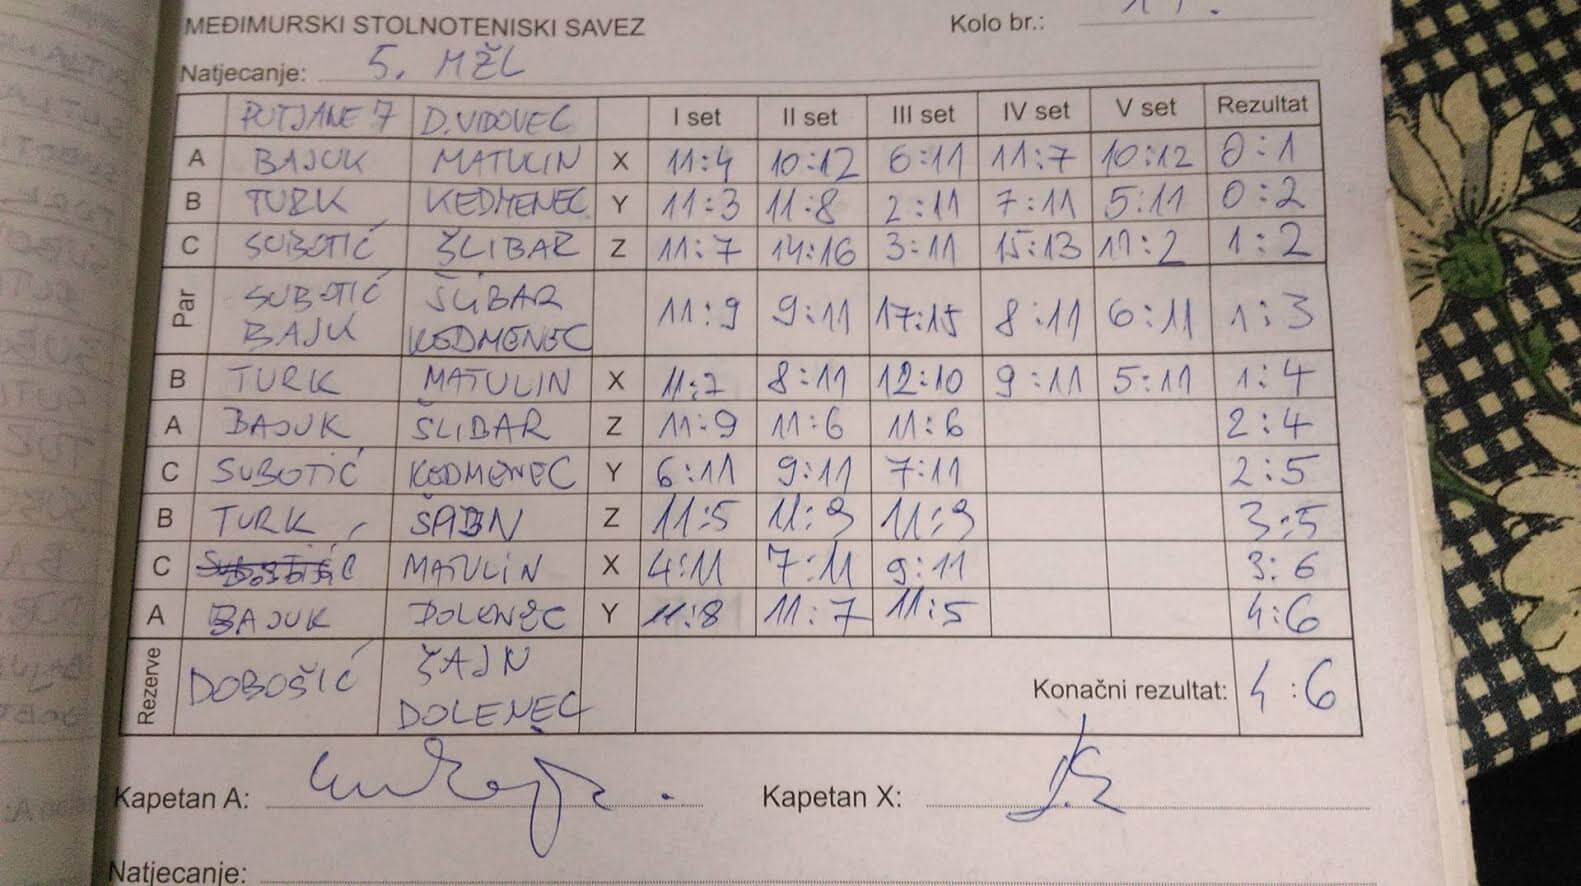 MEĐIMURSKI STOLNOTENISKI SAVEZ Kolo br.:
Natjecanje: 5. MŽL
PUTJANE 7 D.VIDOVEC I set II set III set IV set V set Rezultat
A BAJUK MATULIN X 11:4 10:12 6:11 11:7 10:12 0:1
B TURK KEDMENEC Y 11:3 11:8 2:11 7:11 5:11 0:2
C SUBOTIĆ ŠLIBAR Z 11:7 14:16 3:11 15:13 11:2 1:2
Par SUBOTIĆ BAJUK ŠLIBAR KEDMENEC 11:9 9:11 17:15 8:11 6:11 1:3
B TURK MATULIN X 11:7 8:11 12:10 9:11 5:11 1:4
A BAJUK ŠLIBAR Z 11:9 11:6 11:6 2:4
C SUBOTIĆ KEDMENEC Y 6:11 9:11 7:11 2:5
B TURK Z 11:5 11:9 11:9 3:5
C MATULIN X 4:11 7:11 9:11 3:6
A BAJUK DOLENEC Y 11:8 11:7 11:5 4:6
Rezerve DOBOŠIĆ ŽAJN DOLENEC Konačni rezultat: 4:6
Kapetan A: Kapetan X:
Natjecanje: